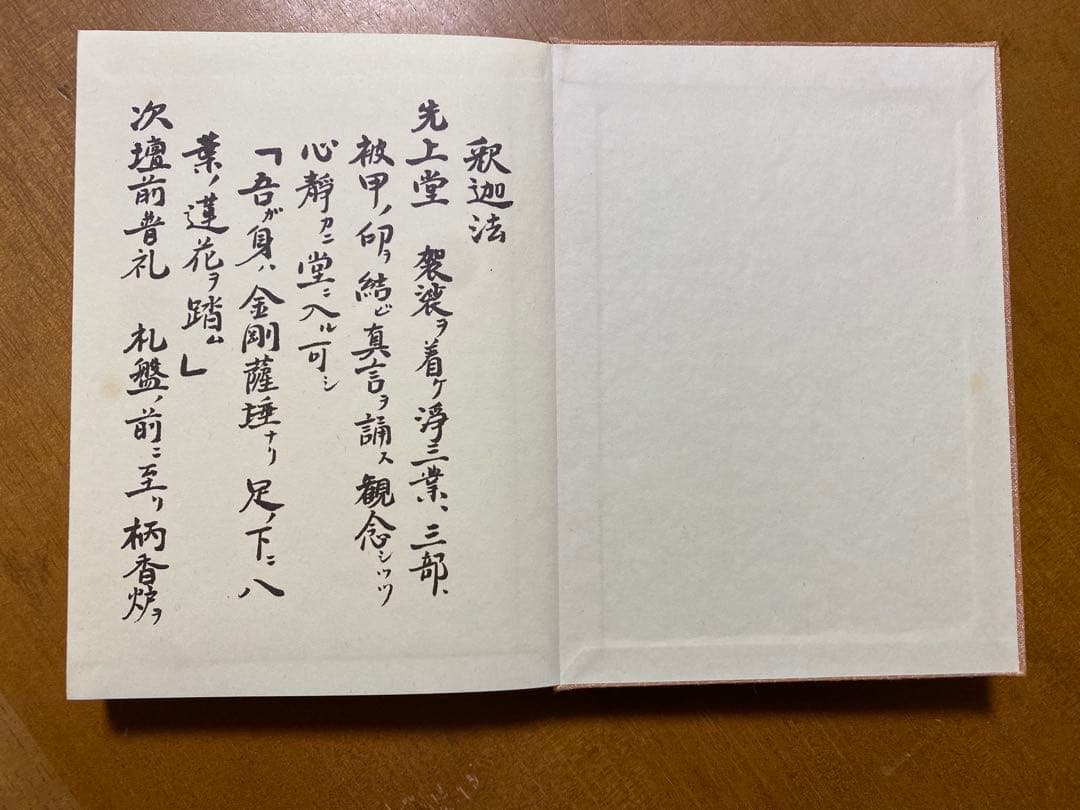 釈迦法
先上堂　袈裟ヲ着ケ淨三業、三部、
被甲ノ印ヲ結ビ真言ヲ誦ス観念シツツ
心靜カニ堂ニ入ル可シ
「吾ガ身ハ金剛薩埵ナリ足ノ下ニ八
葉ノ蓮花ヲ踏ム」
次壇前普礼　礼盤ノ前ニ至リ柄香炉ヲ